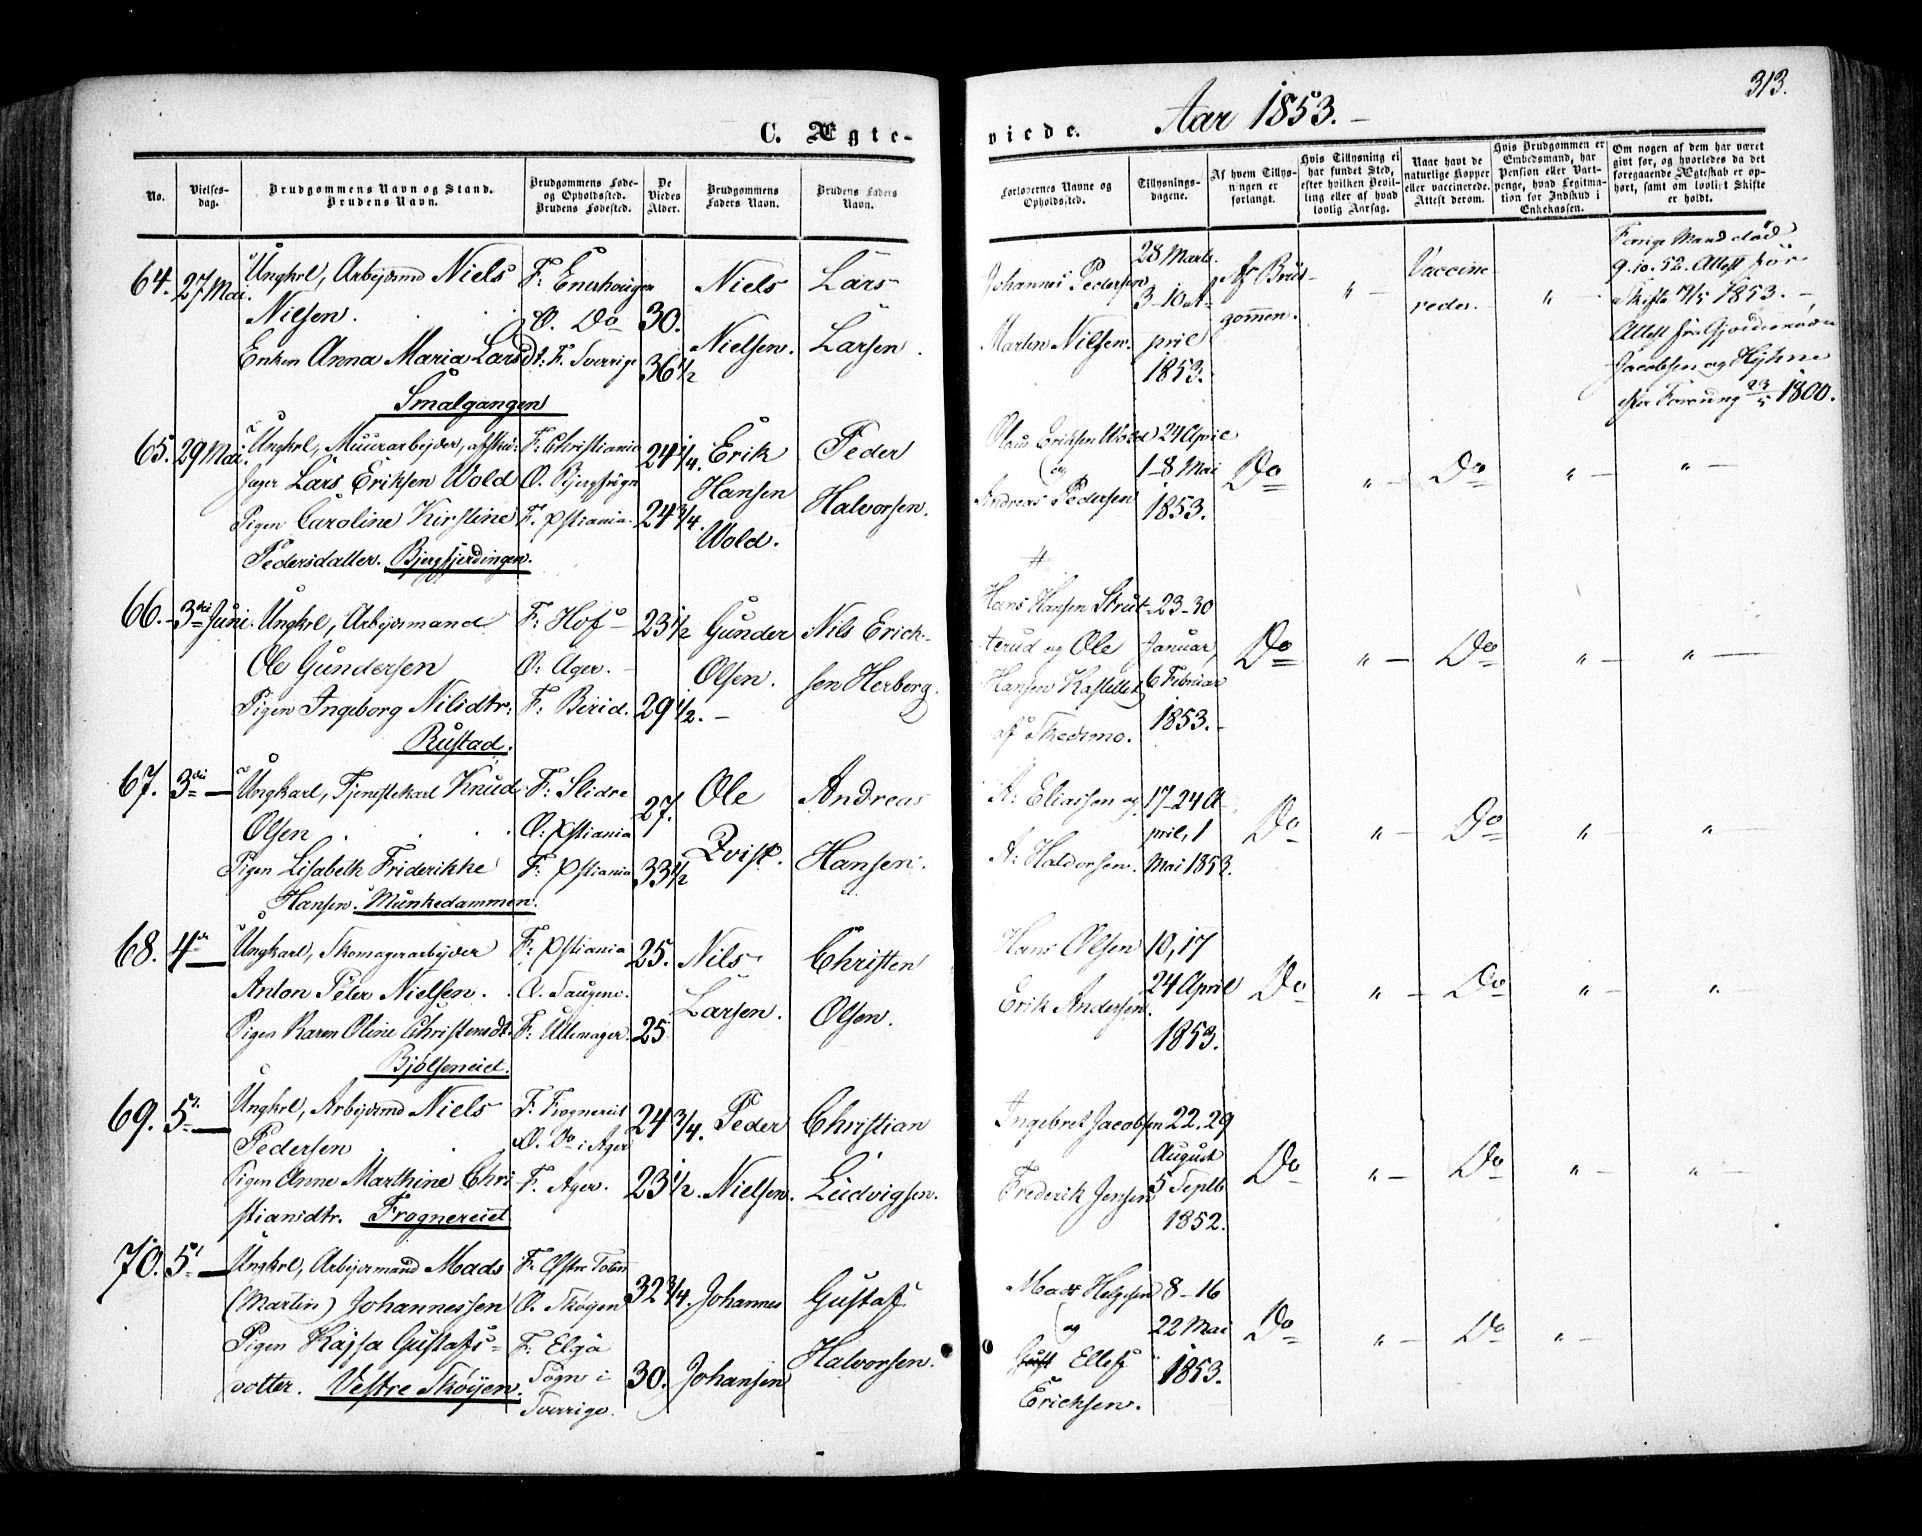 313.
C. Ægte-
viede.
Aar 1853.-
No.
Vielses-
dag.
Brudgommens Navn og Stand.
Brudens Navn.
Brudgommens Føde-
og Opholdssted.
Brudens Fødested.
De
Viedes
Alder.
Brudgommens
Faders Navn.
Brudens Faders
Navn.
Forlovernes Navne og
Opholdssted.
Tillysnings-
dagene.
Af hvem Tillys-
ningen er
forlangt.
Hvis Tillysning ei
har fundet Sted,
efter hvilken Bevil-
ling eller af hvad
lovlig Aarsag.
Naar havt de
naturlige Kopper
eller vaccinerede.
Attest derom.
Hvis Brudgommen er
Embedsmand, har
Pension eller Vart-
penge, hvad Legitima-
tion for Indskud i
Enkekassen.
Om nogen af dem har været
gift før, og hvorledes da det
foregaaende Ægteskab er op-
hørt, samt om lovligt Skifte
er holdt.
64. 27 Mai.
Ungkrl, Arbejdsmd Niels
Nilsen.
Enken Anna Maria Larsdt:
Smalgangen
F. Enerhougen
O. Do
F. Sverrige
30.
36 1/2
Niels
Nielsen.
Lars
Larsen.
Johannes Pedersen
Martin Nilsen.
28 Marts.
3-10 A-
pril
1853.
Af Brud-
gommen.
" -
Vaccine
redes.
" -
Forrige Mand død
9.10.52. Attest for
Skifte 1853.-
Attest fra
Jacobsen og
23/5 1800.
65. 29 Mai.
Ungkrl, Muurarbejder,
Lars Eriksen Wold
Pigen Caroline Kirstine
Pedersdatter. Bjergfjerdingen.
F. Christiania
O.
F. Xstiania.
24 1/4.
24 3/4.
Erik
Hansen
Wold.
Peder
Halvorsen.
Olaus Eriksen Wold
og
Andreas Pedersen
24 April
1-8 Mai
1853.
Do
" -
Do
" -
" -
66. 3die Juni.
Ungkrl, Arbejdsmand
Ole Gundersen
Pigen Ingeborg Nilsdtr:
Rustad.
F: Hof -
O: Ager. -
F: Birid.
23 1/2
29 1/2.
Gunder
Olsen.
Nils Erich-
sen Herberg.
#
Hans Hansen Strut-
terud og Ole
Hansen Kastellet
af Skedsmo.
23-30
Januar,
6 Februar
1853.-
Do
" -
Do
" -
" -
67. 3die -
Ungkarl, Tjenstekarl Knud
Olsen
Pigen Lisabeth Friderikke
Hansen. Munkedammen.
F: Slidre
O: Xstiania
F: Xstiania
27.
33 1/2
Ole
Qvist.
Andreas
Hansen.
A: Eliassen og
A: Halvorsen.
17-24 A
pril, 1
Mai 1853.
Do
" -
Do
" -
" -
68. 4de -
Ungkarl, Skomagerarbejder
Anton Peter Nielsen.
Pigen Karen Oline Christensdt.
Bjølseneiet.
F: Xstiania
O. Saugene.
F:
25.
25
Nils
Larsen.
Christen
Olsen.
Hans Olsen
Erik Andersen.
10, 17
24 April
1853.
Do
" -
Do
" -
" -
69. 5te -
Ungkrl, Arbejdsmd Niels
Pedersen
Pigen Anne Marthine Chri
stiansdtr. Frognereiet
F. Frognereiet
O. Do i Ager
F. Ager.
24 3/4.
23 1/2.
Peder
Nielsen.
Christian
Ludvigsen.
Ingebret Jacobsen
Frederik Jensen
22. 29
August
5 Septb
1852.
Do
" -
Do
" -
" -
70. 5te -
Ungkrl, Arbejdsmand Mads
(Martin) Johannessen
Pigen Kajsa Gustafs-
dotter. Vestre Skøyen.
F. Østre Toten
O. Skøyen
F. Elgå
Sogn i
Sverrige.
32 3/4.
30.
Johannes
Johansen
Gustaf
Halvorsen.
Mads Helgesen
og
Ellef
Ericksen.
8-16
22 Mai
1853.
Do
" -
Do
" -